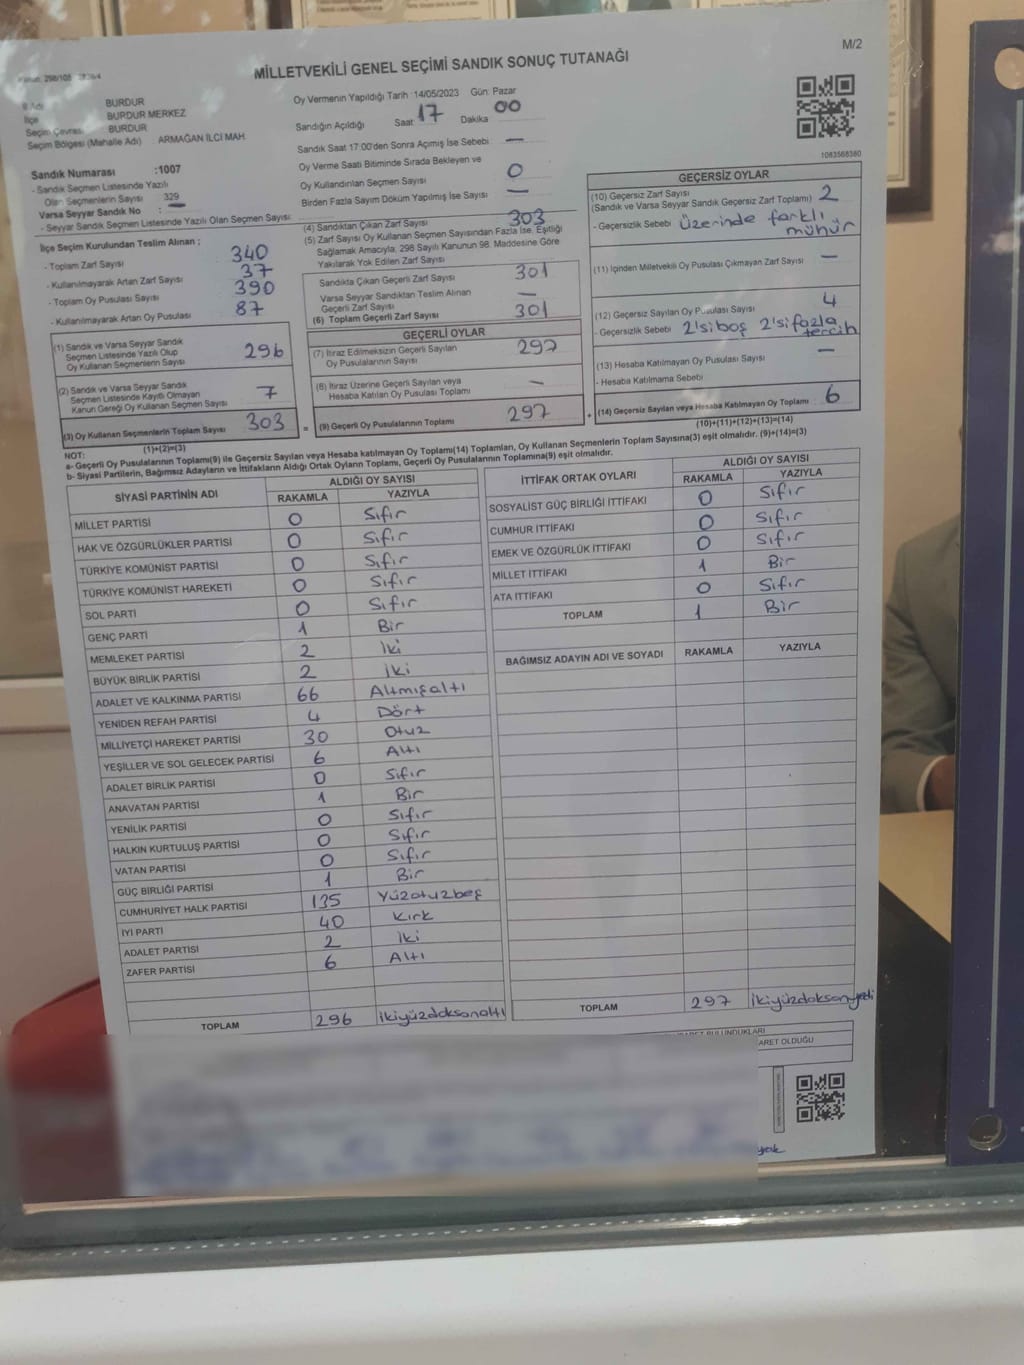 M/2
MİLLETVEKİLİ GENEL SEÇİMİ SANDIK SONUÇ TUTANAĞI
BURDUR
İlçe BURDUR MERKEZ
Seçim Çevresi BURDUR
Seçim Bölgesi (Mahalle Adı) ARMAĞAN İLCİ MAH.
Oy Vermenin Yapıldığı Tarih :14/05/2023 Gün: Pazar
Sandığın Açıldığı Saat 17 Dakika 00
Sandık Saat 17:00'den Sonra Açımış İse Sebebi : —
Oy Verme Saati Bitiminde Sırada Bekleyen ve
Oy Kullandırılan Seçmen Sayısı 0
Birden Fazla Sayım Döküm Yapılmış İse Sayısı —
1083568360
Sandık Numarası :1007
- Sandık Seçmen Listesinde Yazılı
Olan Seçmenlerin Sayısı 329
Varsa Seyyar Sandık No : —
- Seyyar Sandık Seçmen Listesinde Yazılı Olan Seçmen Sayısı:
İlçe Seçim Kurulundan Teslim Alınan ;
- Toplam Zarf Sayısı 340
- Kullanılmayarak Artan Zarf Sayısı 37
- Toplam Oy Pusulası Sayısı 390
- Kullanılmayarak Artan Oy Pusulası 87
(1) Sandık ve Varsa Seyyar Sandık
Seçmen Listesinde Yazılı Olup
Oy Kullanan Seçmenlerin Sayısı 296
(2) Sandık ve Varsa Seyyar Sandık
Seçmen Listesinde Kayıtlı Olmayan
Kanun Gereği Oy Kullanan Seçmen Sayısı 7
(3) Oy Kullanan Seçmenlerin Toplam Sayısı 303
(1)+(2)=(3)
(4) Sandıktan Çıkan Zarf Sayısı 303
(5) Zarf Sayısı Oy Kullanan Seçmen Sayısından Fazla İse, Eşitliği
Sağlamak Amacıyla, 298 Sayılı Kanunun 98. Maddesine Göre
Yakılarak Yok Edilen Zarf Sayısı
Sandıkta Çıkan Geçerli Zarf Sayısı 301
Varsa Seyyar Sandıktan Teslim Alınan
Geçerli Zarf Sayısı —
(6) Toplam Geçerli Zarf Sayısı 301
GEÇERLİ OYLAR
(7) İtiraz Edilmeksizin Geçerli Sayılan
Oy Pusulalarının Sayısı 297
(8) İtiraz Üzerine Geçerli Sayılan veya
Hesaba Katılan Oy Pusulası Toplamı —
= (9) Geçerli Oy Pusulalarının Toplamı 297 +
GEÇERSİZ OYLAR
(10) Geçersiz Zarf Sayısı 2
(Sandık ve Varsa Seyyar Sandık Geçersiz Zarf Toplamı)
- Geçersizlik Sebebi üzerinde farklı
mühür
(11) İçinden Milletvekili Oy Pusulası Çıkmayan Zarf Sayısı —
(12) Geçersiz Sayılan Oy Pusulası Sayısı 4
- Geçersizlik Sebebi 2'si boş 2'si fazla
tercih
(13) Hesaba Katılmayan Oy Pusulası Sayısı —
- Hesaba Katılmama Sebebi
(14) Geçersiz Sayılan veya Hesaba Katılmayan Oy Toplamı 6
(10)+(11)+(12)+(13)=(14)
NOT:
a- Geçerli Oy Pusulalarının Toplamı(9) ile Geçersiz Sayılan veya Hesaba katılmayan Oy Toplamı(14) Toplamları, Oy Kullanan Seçmenlerin Toplam Sayısına(3) eşit olmalıdır. (9)+(14)=(3)
b- Siyasi Partilerin, Bağımsız Adayların ve İttifakların Aldığı Ortak Oyların Toplamı, Geçerli Oy Pusulalarının Toplamına(9) eşit olmalıdır.
SİYASİ PARTİNİN ADI ALDIĞI OY SAYISI
RAKAMLA YAZIYLA
MİLLET PARTİSİ 0 Sıfır
HAK VE ÖZGÜRLÜKLER PARTİSİ 0 Sıfır
TÜRKİYE KOMÜNİST PARTİSİ 0 Sıfır
TÜRKİYE KOMÜNİST HAREKETİ 0 Sıfır
SOL PARTİ 0 Sıfır
GENÇ PARTİ 1 Bir
MEMLEKET PARTİSİ 2 İki
BÜYÜK BİRLİK PARTİSİ 2 İki
ADALET VE KALKINMA PARTİSİ 66 Altmışaltı
YENİDEN REFAH PARTİSİ 4 Dört
MİLLİYETÇİ HAREKET PARTİSİ 30 Otuz
YEŞİLLER VE SOL GELECEK PARTİSİ 6 Altı
ADALET BİRLİK PARTİSİ 0 Sıfır
ANAVATAN PARTİSİ 1 Bir
YENİLİK PARTİSİ 0 Sıfır
HALKIN KURTULUŞ PARTİSİ 0 Sıfır
VATAN PARTİSİ 0 Sıfır
GÜÇ BİRLİĞİ PARTİSİ 1 Bir
CUMHURİYET HALK PARTİSİ 135 Yüzotuzbeş
IYI PARTİ 40 Kırk
ADALET PARTİSİ 2 İki
ZAFER PARTİSİ 6 Altı
TOPLAM 296 ikiyüzdoksanaltı
İTTİFAK ORTAK OYLARI ALDIĞI OY SAYISI
RAKAMLA YAZIYLA
SOSYALİST GÜÇ BİRLİĞİ İTTİFAKI 0 Sıfır
CUMHUR İTTİFAKI 0 Sıfır
EMEK VE ÖZGÜRLÜK İTTİFAKI 0 Sıfır
MİLLET İTTİFAKI 1 Bir
ATA İTTİFAKI 0 Sıfır
TOPLAM 1 Bir
BAĞIMSIZ ADAYIN ADI VE SOYADI RAKAMLA YAZIYLA
TOPLAM 297 ikiyüzdoksanyedi
BULUNDUKLARI
ARET OLDUĞU
yok